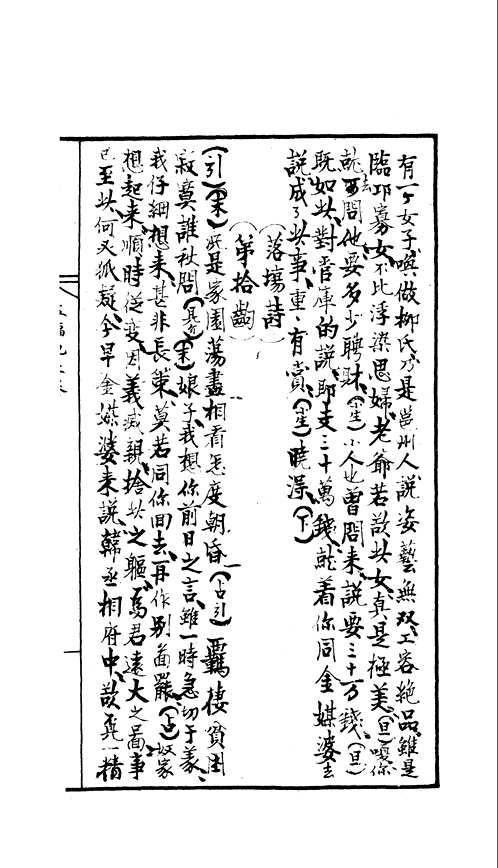 有一个女子喚做柳氏乃是邕州人說姿藝無双工容絕品雖是
臨邛寡女不比浮染思婦老爺若敌此女真是極美(旦)嗄你
就去問他要多少聘財(小生)小人也曾問来說要三十万錢(旦)
既如此對管庫的說即支三十萬錢就着你同金媒婆去
說成了此事重〻有賞(小生)曉得(下)
落塲詩
第拾齣
(引)(末)此是家園蕩盡相看怎度朝昏(占引)羈棲貧困
寂寞誰社問(末)娘子我想你前日之言雖一時急切于義
我仔細想来甚非長策莫若同你回去再作别啚罷(占)奴家
想起来順時從变因義㓕親捨此之軀爲君遠大之啚事
已至此何又狐疑今早金媒婆来說韓丞相府中敌覔一精